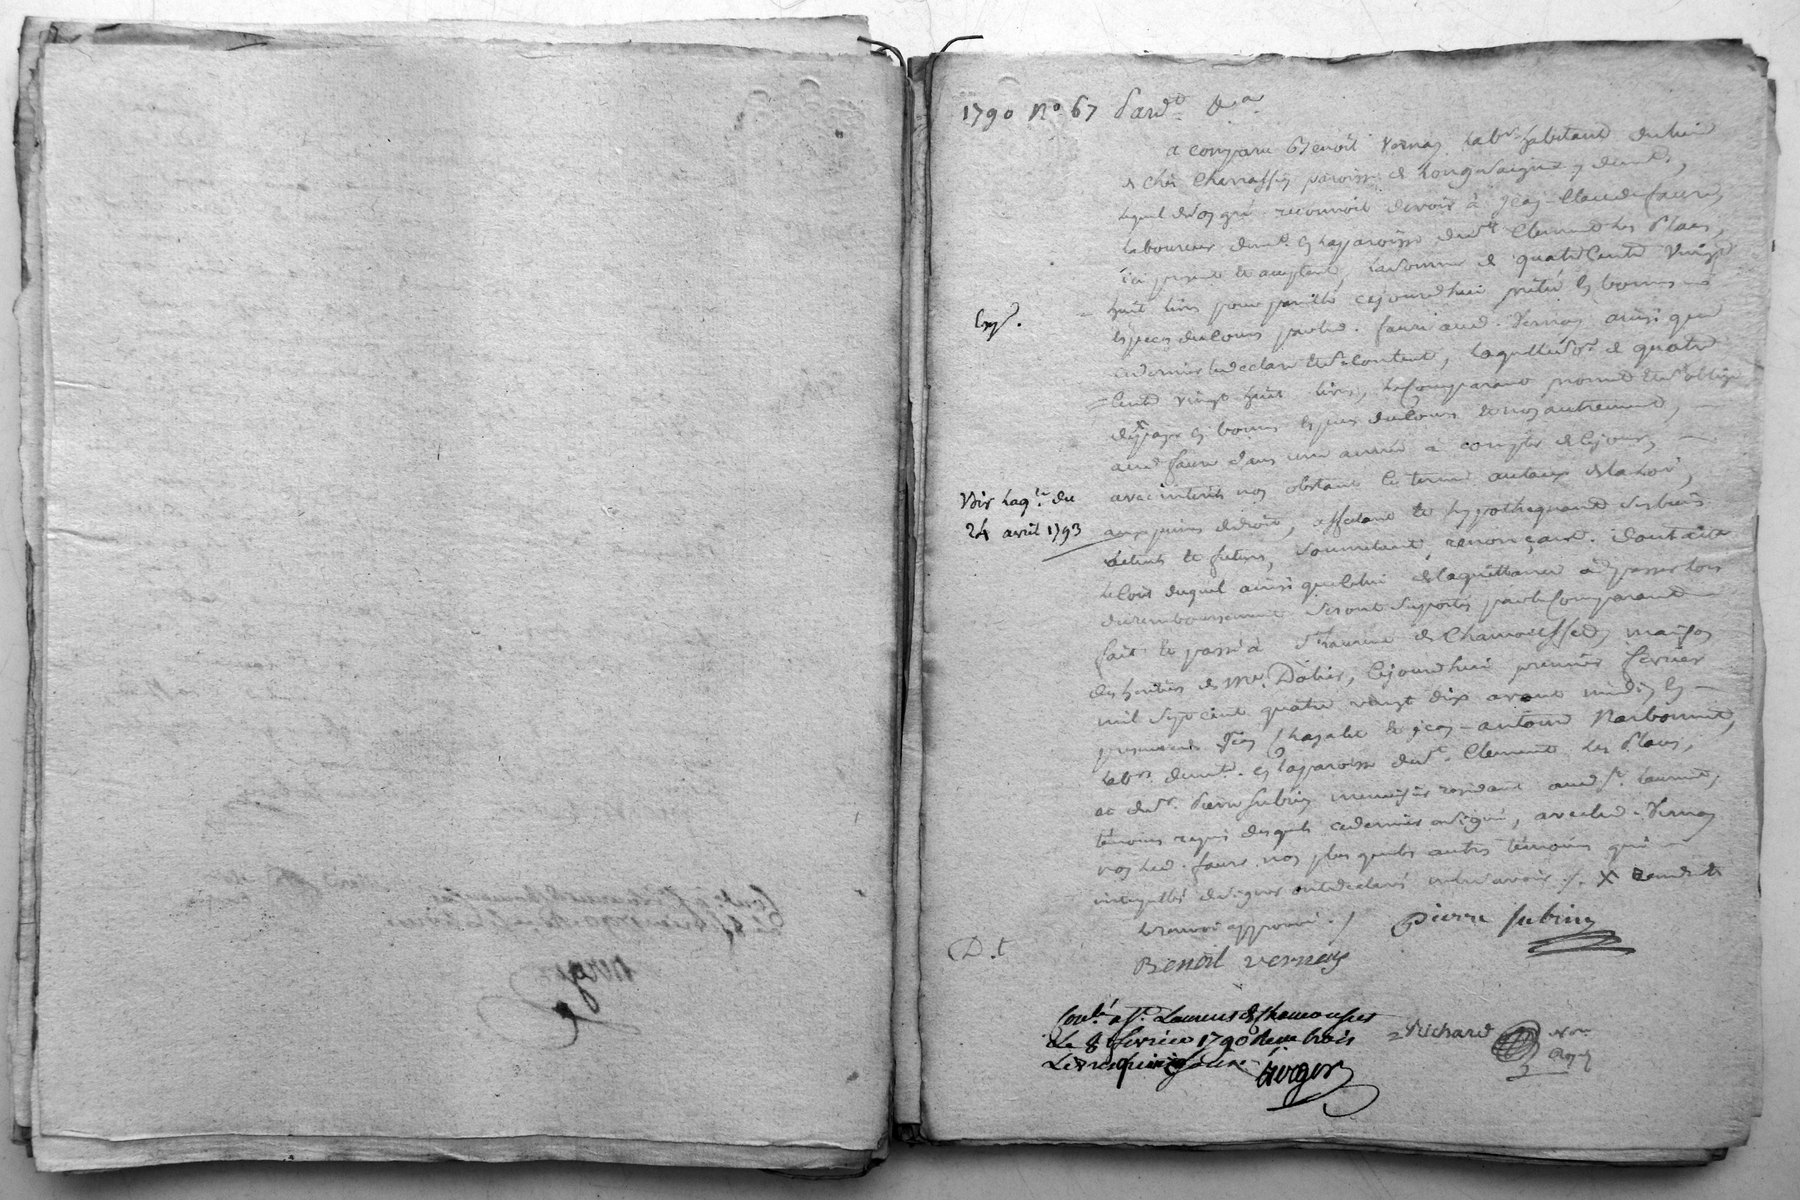 1790 N° 67 Pard.t &.a
a comparu Benoit Vernay lab.r habitant du lieu
de chès Chanassy paroisse de Longessaigne y dem.t,
lequel de son gré reconnoit devoir à jean-Claude faure
laboureur dem.t en la paroisse de S.t Clement les Places,
ici present et acceptant, la somme de quatre Cents Vingt
huit livres pour pareille cejourd'hui prêtée en bonnes
especes du Cours par led. faure aud. Vernay ainsi que
ce dernier le declare et s'en Contente, laquelle so.e de quatre
Cents vingt huit livres, le Comparant promet et s'oblige
de payer en bonnes especes du Cours et non autrement,
aud faure dans une année à compter de ce jour,
avec interets non obstant le terme au taux de la loi,
aux peines de droit, affectant et hypothequant ses biens
présents et futurs, soumettant, renonçant. Dont acte
le Cout duquel ainsi que celui de la quittance à en passer lors
du remboursement seront suportés par le Comparant
fait et passé à S.t Laurent de Chamousset, maison
des heritiers de M.e Dalier, Cejourd'hui premier fevrier
mil sept cent quatre vingt dix avant midi, en
presence de Jean Chazalet et jean-antoine Narbonnet,
lab.rs dem.t en la paroisse de S.t Clement les Places,
et de S.r Pierre Subrin menuisier residant aud S.t Laurent,
témoins requis desquels ce dernier a signé, avec led. Vernay
non led. faure, non plus que les autres témoins qui
interpellés de signer ont declaré ne le savoir ./. X
le renvoi approuvé ./
Pierre Subrin
Benoit Vernay
Exp.é
Voir la q.ce du
24 avril 1793
D.t
Con.lé a S.t Laurent de Chamousset
Le 8 fevrier 1790 Reçu trois
Livres quinze sous
Berger
Richard
N.re
Royal